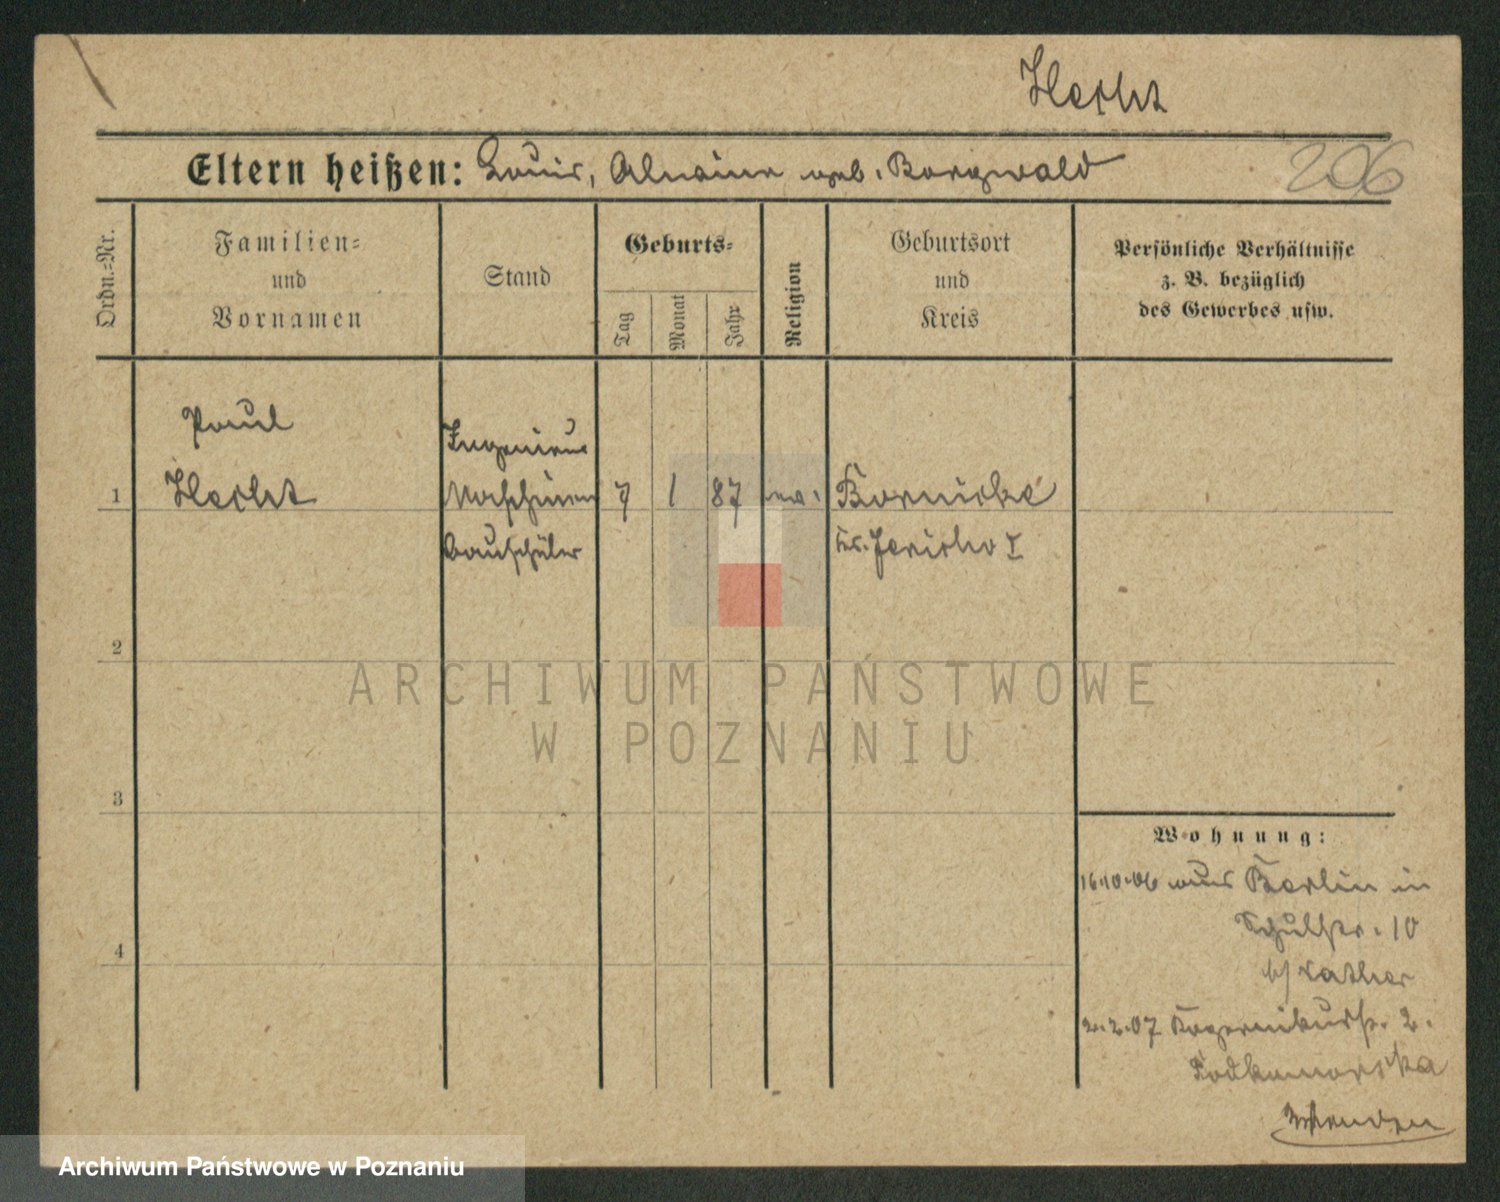 Hecht
Eltern heißen: Louis, Alwine geb. Borgwald
206
Ordn.=Nr.
Familien=
und
Vornamen
Stand
Geburts=
Tag
Monat
Jahr
Religion
Geburtsort
und
Kreis
Persönliche Verhältnisse
z. B. bezüglich
des Gewerbes usw.
1
Paul
Hecht
Ingenieur
Maschinen
bauschüler
7
1
87
ev.
Bornicke
Kr. Jericho I
2
3
4
Wohnung:
16.10.06 aus Berlin in
Schulstr. 10
b/ Rather
2.2.07
2.
ARCHIWUM PAŃSTWOWE
W POZNANIU
Archiwum Państwowe w Poznaniu